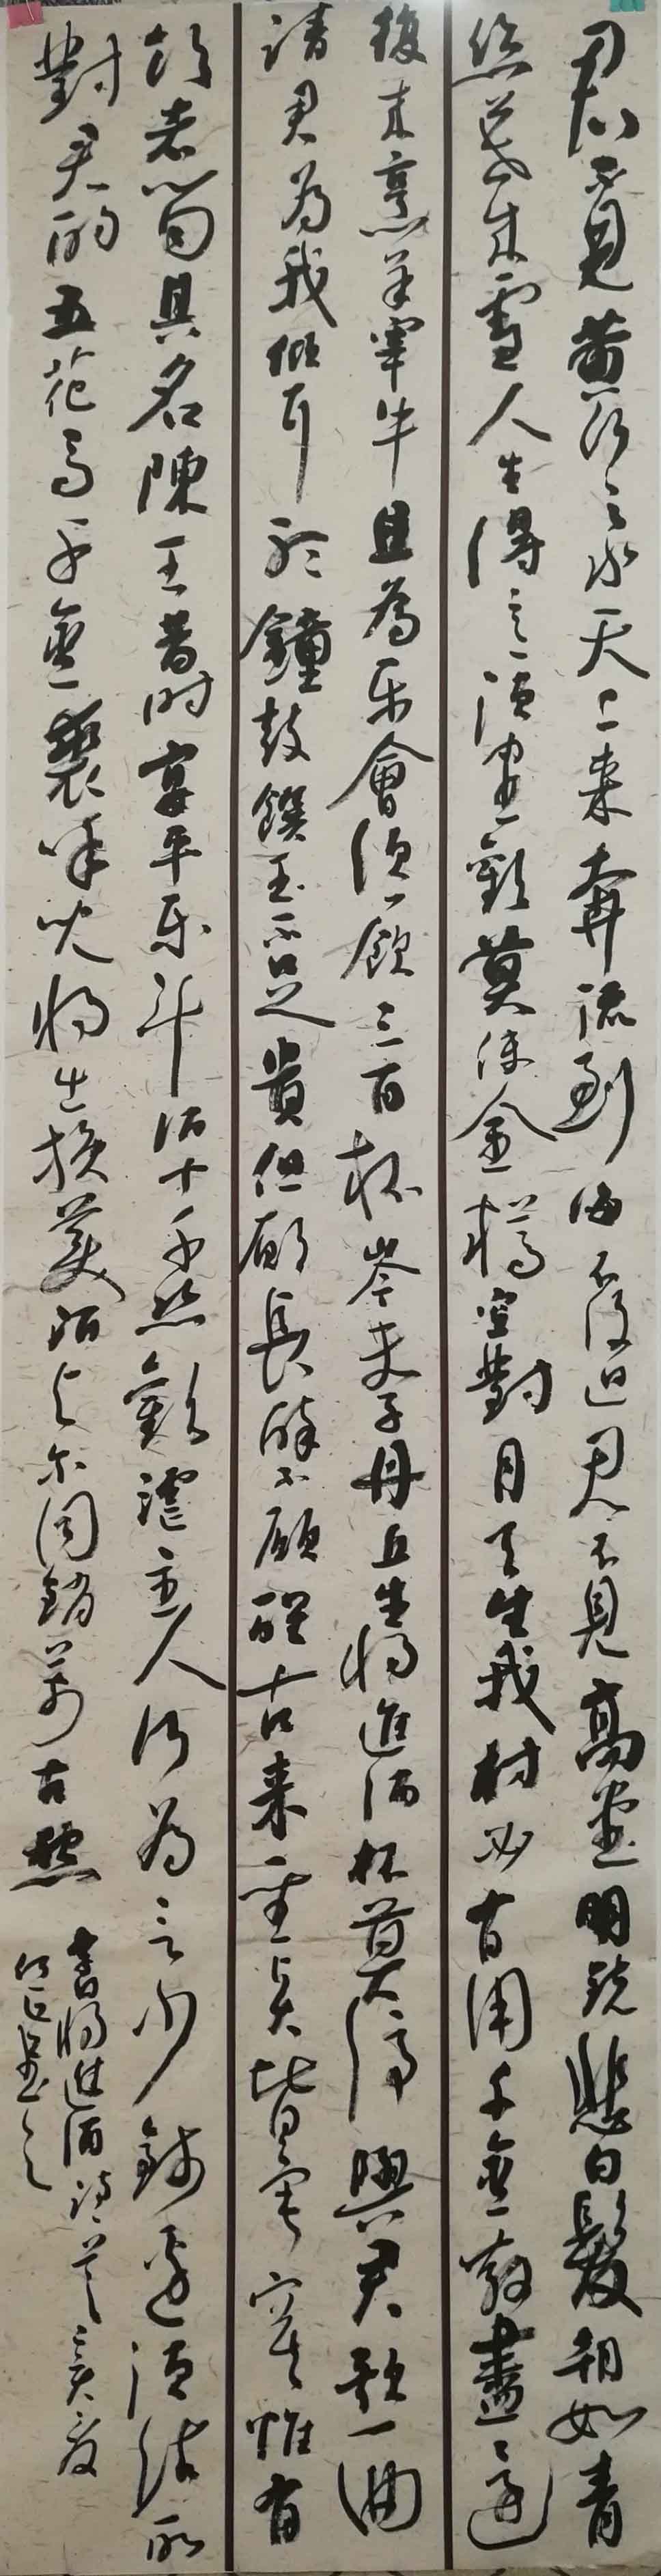 君不見黄河之水天上来奔流到海不復迴君不見高堂明鏡悲白髮朝如青
絲暮成雪人生得意須盡歡莫使金樽空對月天生我材必有用千金散盡還
復来烹羊宰牛且為乐會須一飲三百杯岑夫子丹丘生将進酒杯莫停與君歌一曲
請君為我傾耳聽鐘鼓饌玉不足貴但願長醉不願醒古来聖賢皆寂寞惟有
飲者留其名陳王昔時宴平乐斗酒十千恣歡謔主人何為言少錢逕須沽取
對君酌五花馬千金裘呼兒将出換美酒与尔同銷萬古愁
書将進酒詩